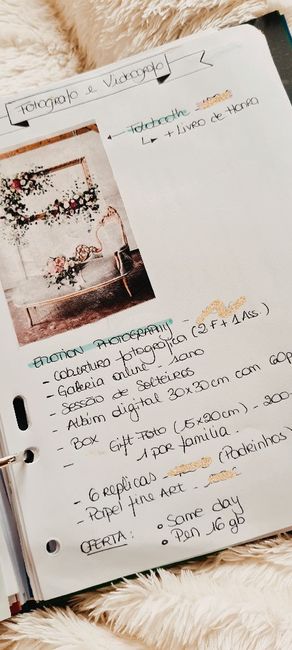 Fotógrafo e Videógrafo
Photobooth -
+ Livro de Honra
EMOTION PHOTOGRAPHY -
- Cobertura fotográfica (2F + 1 Ass.)
- Galeria online - 1 ano
- Sessão de Solteiros
- Álbum digital 30x30cm com 60p
- Box
- Gift-Foto (15x20cm) - 200
1 por família.
- 6 replicas - (Padrinhos)
- Papel fine ART -
OFERTA: • Same day
• Pen 16 gb